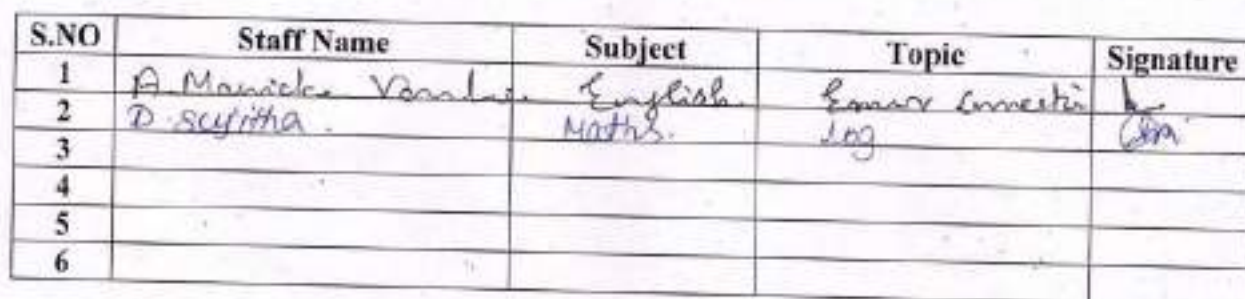 S.NO Staff Name Subject Topic Signature
1 A. Manicka English. Error Correction
2 D. Sujitha. Maths. Log
3
4
5
6